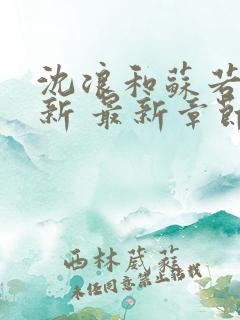 沈浪和蘇若
新 最新章節
西林葳蕤
未经同意禁止转载